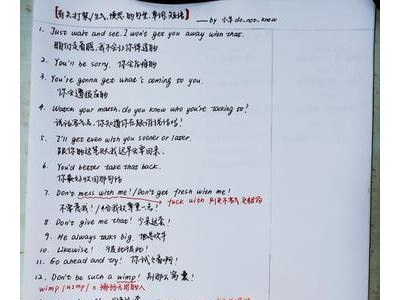 [有关打架/生气、愤怒的句型,单词,短语] ——by 小羊do_not_know
1. Just wait and see. I won't get you away with that.
咱们走着瞧,我不会让你得逞的
2. You'll be sorry. 你会后悔的
3. You're gonna get what's coming to you.
你会遭报应的
4. Watch your mouth. do you know who you're talking to?
说话客气点,你知道你在跟谁说话吗?
5. I'll get even with you sooner or later.
跟你的这笔账我迟早会算回来.
6. You'd better take that back.
你最好收回那句话
7. Don't mess with me! /Don't get fresh with me!
不要惹我! /给我放尊重一点! fuck with
8. Don't give me that! 少来这套!
9. He always talks big. 他总吹牛
10. Likewise! 彼此彼此!
11. Go ahead and try! 你试试看啊!
12. Don't be such a wimp! 别那么窝囊!
wimp /wɪmp/ n